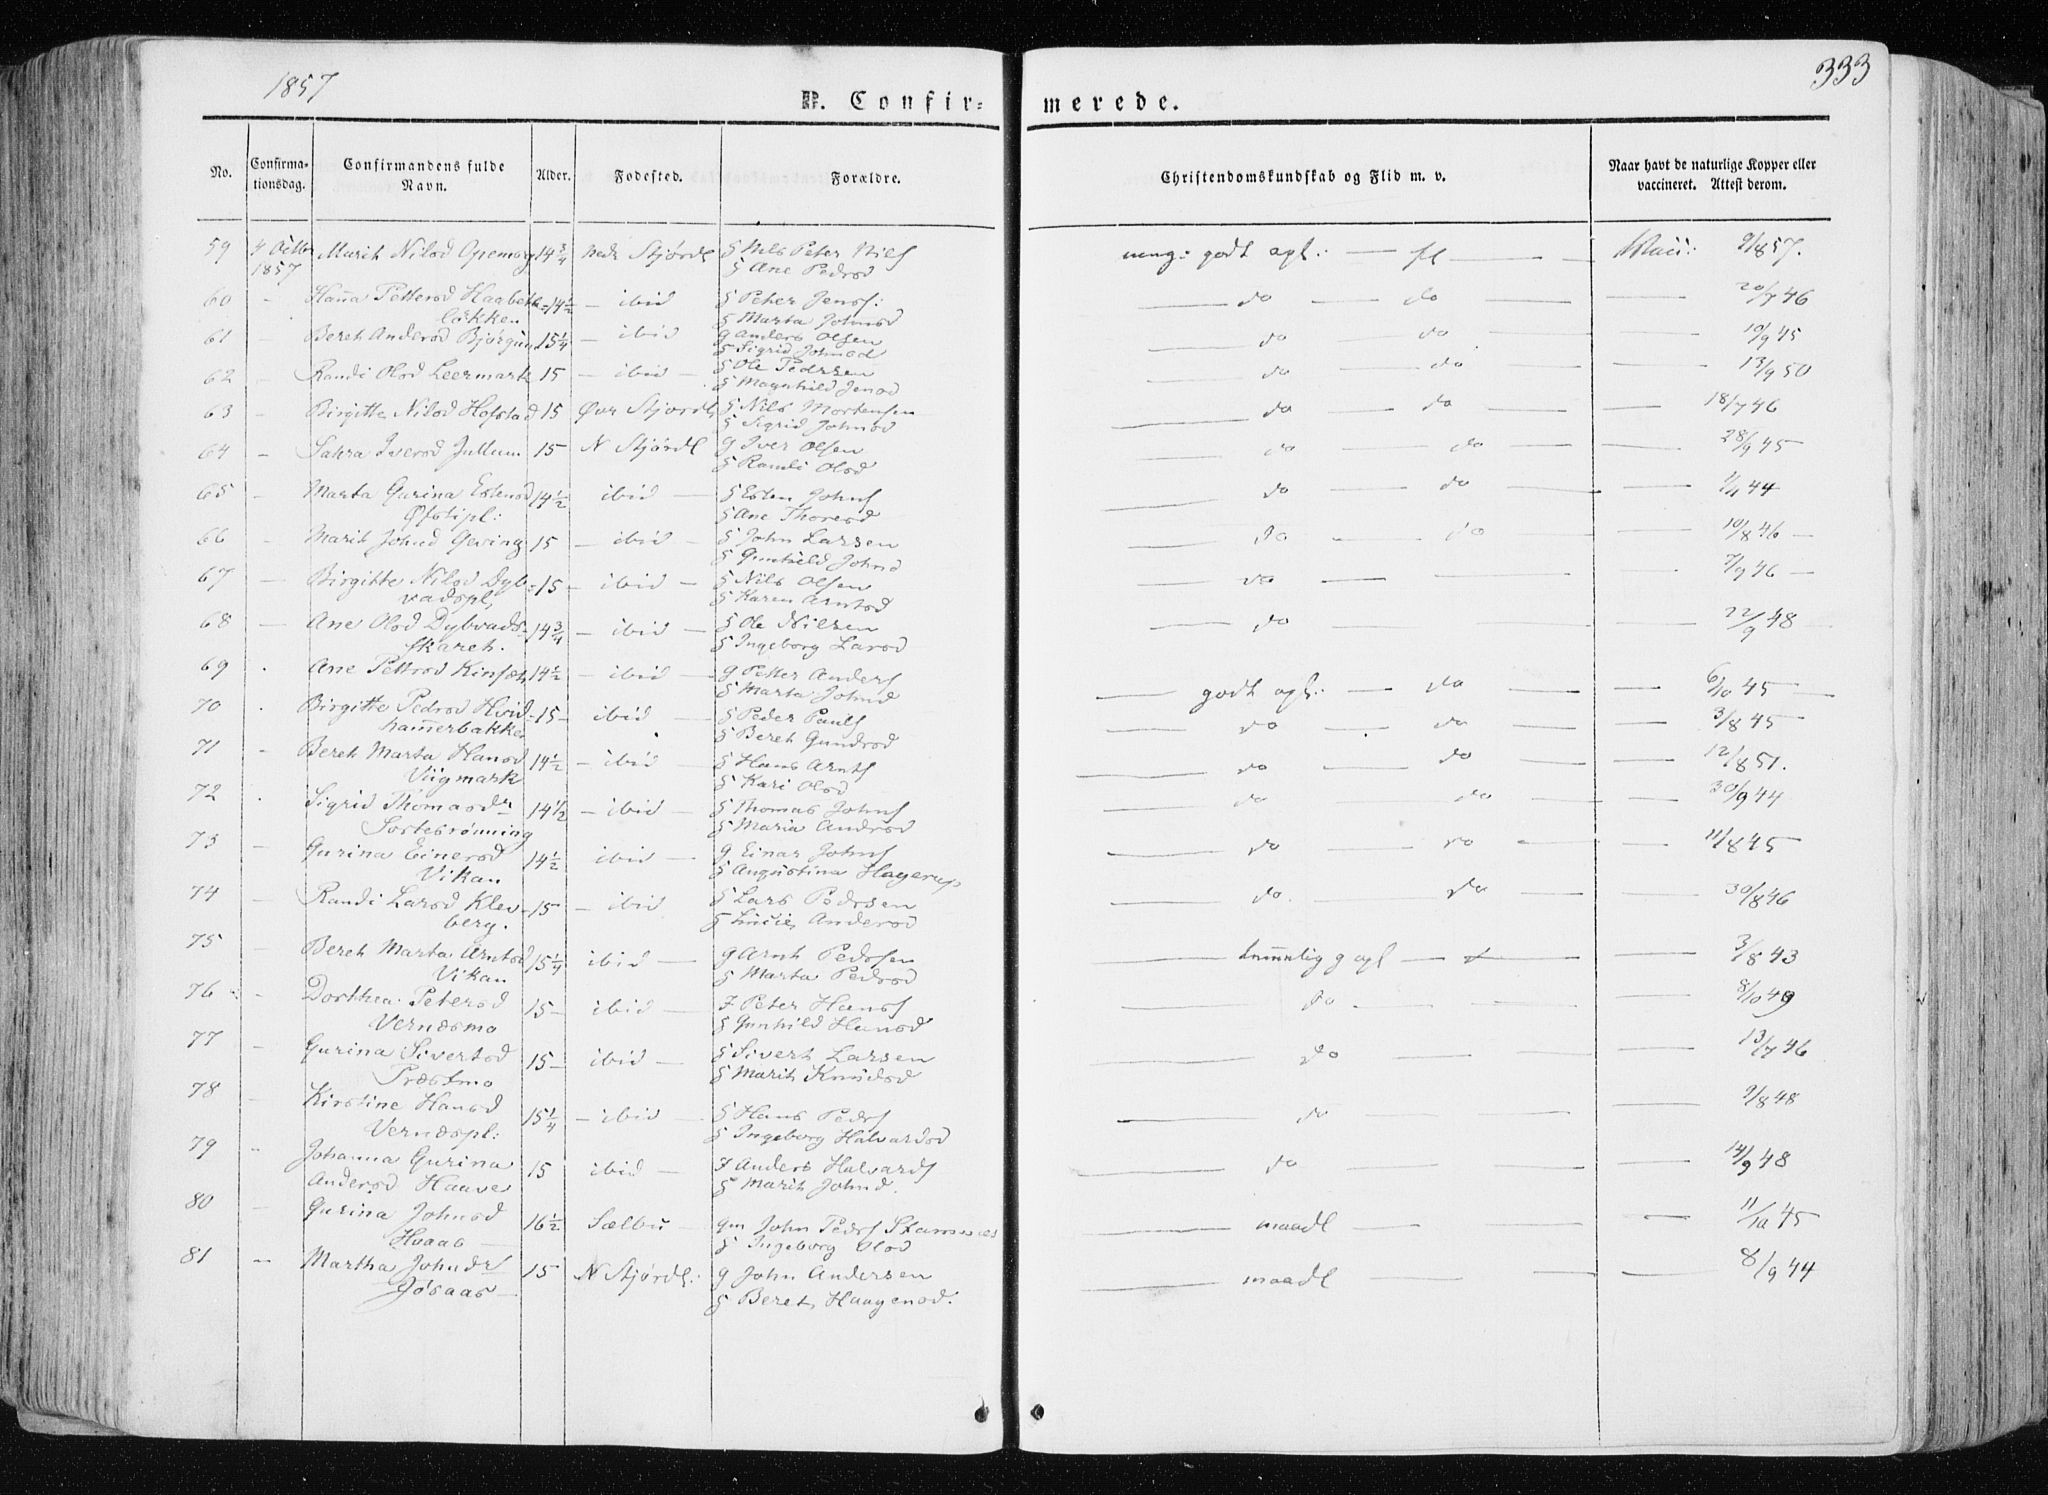 1857
333
D. Confir-merede.
No. Confirma-tionsdag. Confirmandens fulde Navn. Alder. Fødested. Forældre. Christendomskundskab og Flid m. v. Naar havt de naturlige Kopper eller vaccineret. Attest derom.
59 4 Octb 1857 Marit Nilsd 14 3/4 Nedr Stjørdl § Nils Peter Nils § Ane Pedrsd meg: godt opl: — fl — Vacc: 9/8 57.
60 - Hanna Pettersd Haabetlökken 14 1/2 — ibid § Peter Jens: § Marta Johnsd — do — do — 20/7 46
61 - Beret Andersd Bjørgum 15 1/4 — ibid g Anders Olsen § Sigrid Johnsd — do — do — 10/9 45
62 - Randi Olsd Leermark 15 — ibid — § Ole Pedrsen § Magnhild Jensd — do — do — 13/9 50
63 - Birgitte Nilsd Hofstad 15 Øvr Stjordl § Nils Mortensen § Sigrid Johnsd — do — do — 18/7 46
64 - Sahra Iversd Jullum 15 N Stjørdl g Iver Olsen § Randi Olsd — do — do — 28/9 45
65 - Marta Gurina Estensd Øfstipl: 14 1/2 ibid — § Esten Johns § Ane Thoresd — do — do — 44
66 - Marit Johnsd Geving 15 — ibid — § John Larsen § Gunhild Johnsd — do — do — 10/8 46 —
67 — Birgitte Nilsd Dybvadspl, 15 — ibid — § Nils Olsen § Karen Arntsd — do — 7/9 46 —
68 — Ane Olsd Dybvadsskaret. 14 3/4 — ibid — § Ole Nilsen § Ingeborg Larsd — do — 22/9 48 —
69 . Ane Pettrsd Kinset 14 1/2 — ibid — g Petter Anders § Marta Johnsd — godt opl: — do — 6/10 45 —
70 . Birgitte Pedrsd Hvidhammerbakken 15 — ibid — § Peder Pauls § Beret Gundrsd — do — do — 3/8 45 —
71 - Beret Marta Hansd Viigmark 14 1/2 — ibid — § Hans Arnts § Kari Olsd — do — do — 12/8 51.
72 . Sigrid Thomasdr Sostesrønning 14 1/2 — ibid — § Thomas Johns § Maria Andrsd — do — do — 30/9 44
73 — Gurina Einersd Vikan 14 1/2 ibid — g Einar Johns § Augustina Hagerup — do — do — 11/8 45
74 - Randi Larsd Klevberg. 15 — ibid § Lars Pedrsen § Lucie Andersd — do. — do — 30/8 46
75 — Beret Marta Arntsd Vikan 15 1/4 ibid — g Arnt Pedrsen § Marta Pedrsd — temmelig g opl — — 3/8 43
76 - Dorthea Petersd Vernæsmo 15 — ibid — F Peter Hans § Gunhild Hansd — do — 8/10 49
77 — Gurina Sivertsd Præstmo 15 — ibid — § Sivert Larsen § Marit Knudsd — do — 13/7 46
78 — Kirstine Hansd Vernæspl: 15 1/4 — ibid — § Hans Pedrs § Ingeborg Halvardsd — do — 9/8 48
79 - Johanna Gurina Andersd Haave 15 ibid — F Anders Halvards § Marit Johnsd. — do — 14/9 48
80 — Gurina Johnsd Hvaab — 16 1/2 Sælbu — gm John Pedrs Stamnæs § Ingeborg Olsd — maadl — 11/10 45
81 — Martha Johnsdr Jøsaas — 15 N Stjørdl: g John Andersen § Beret Haagensd. — maadl — 8/9 44